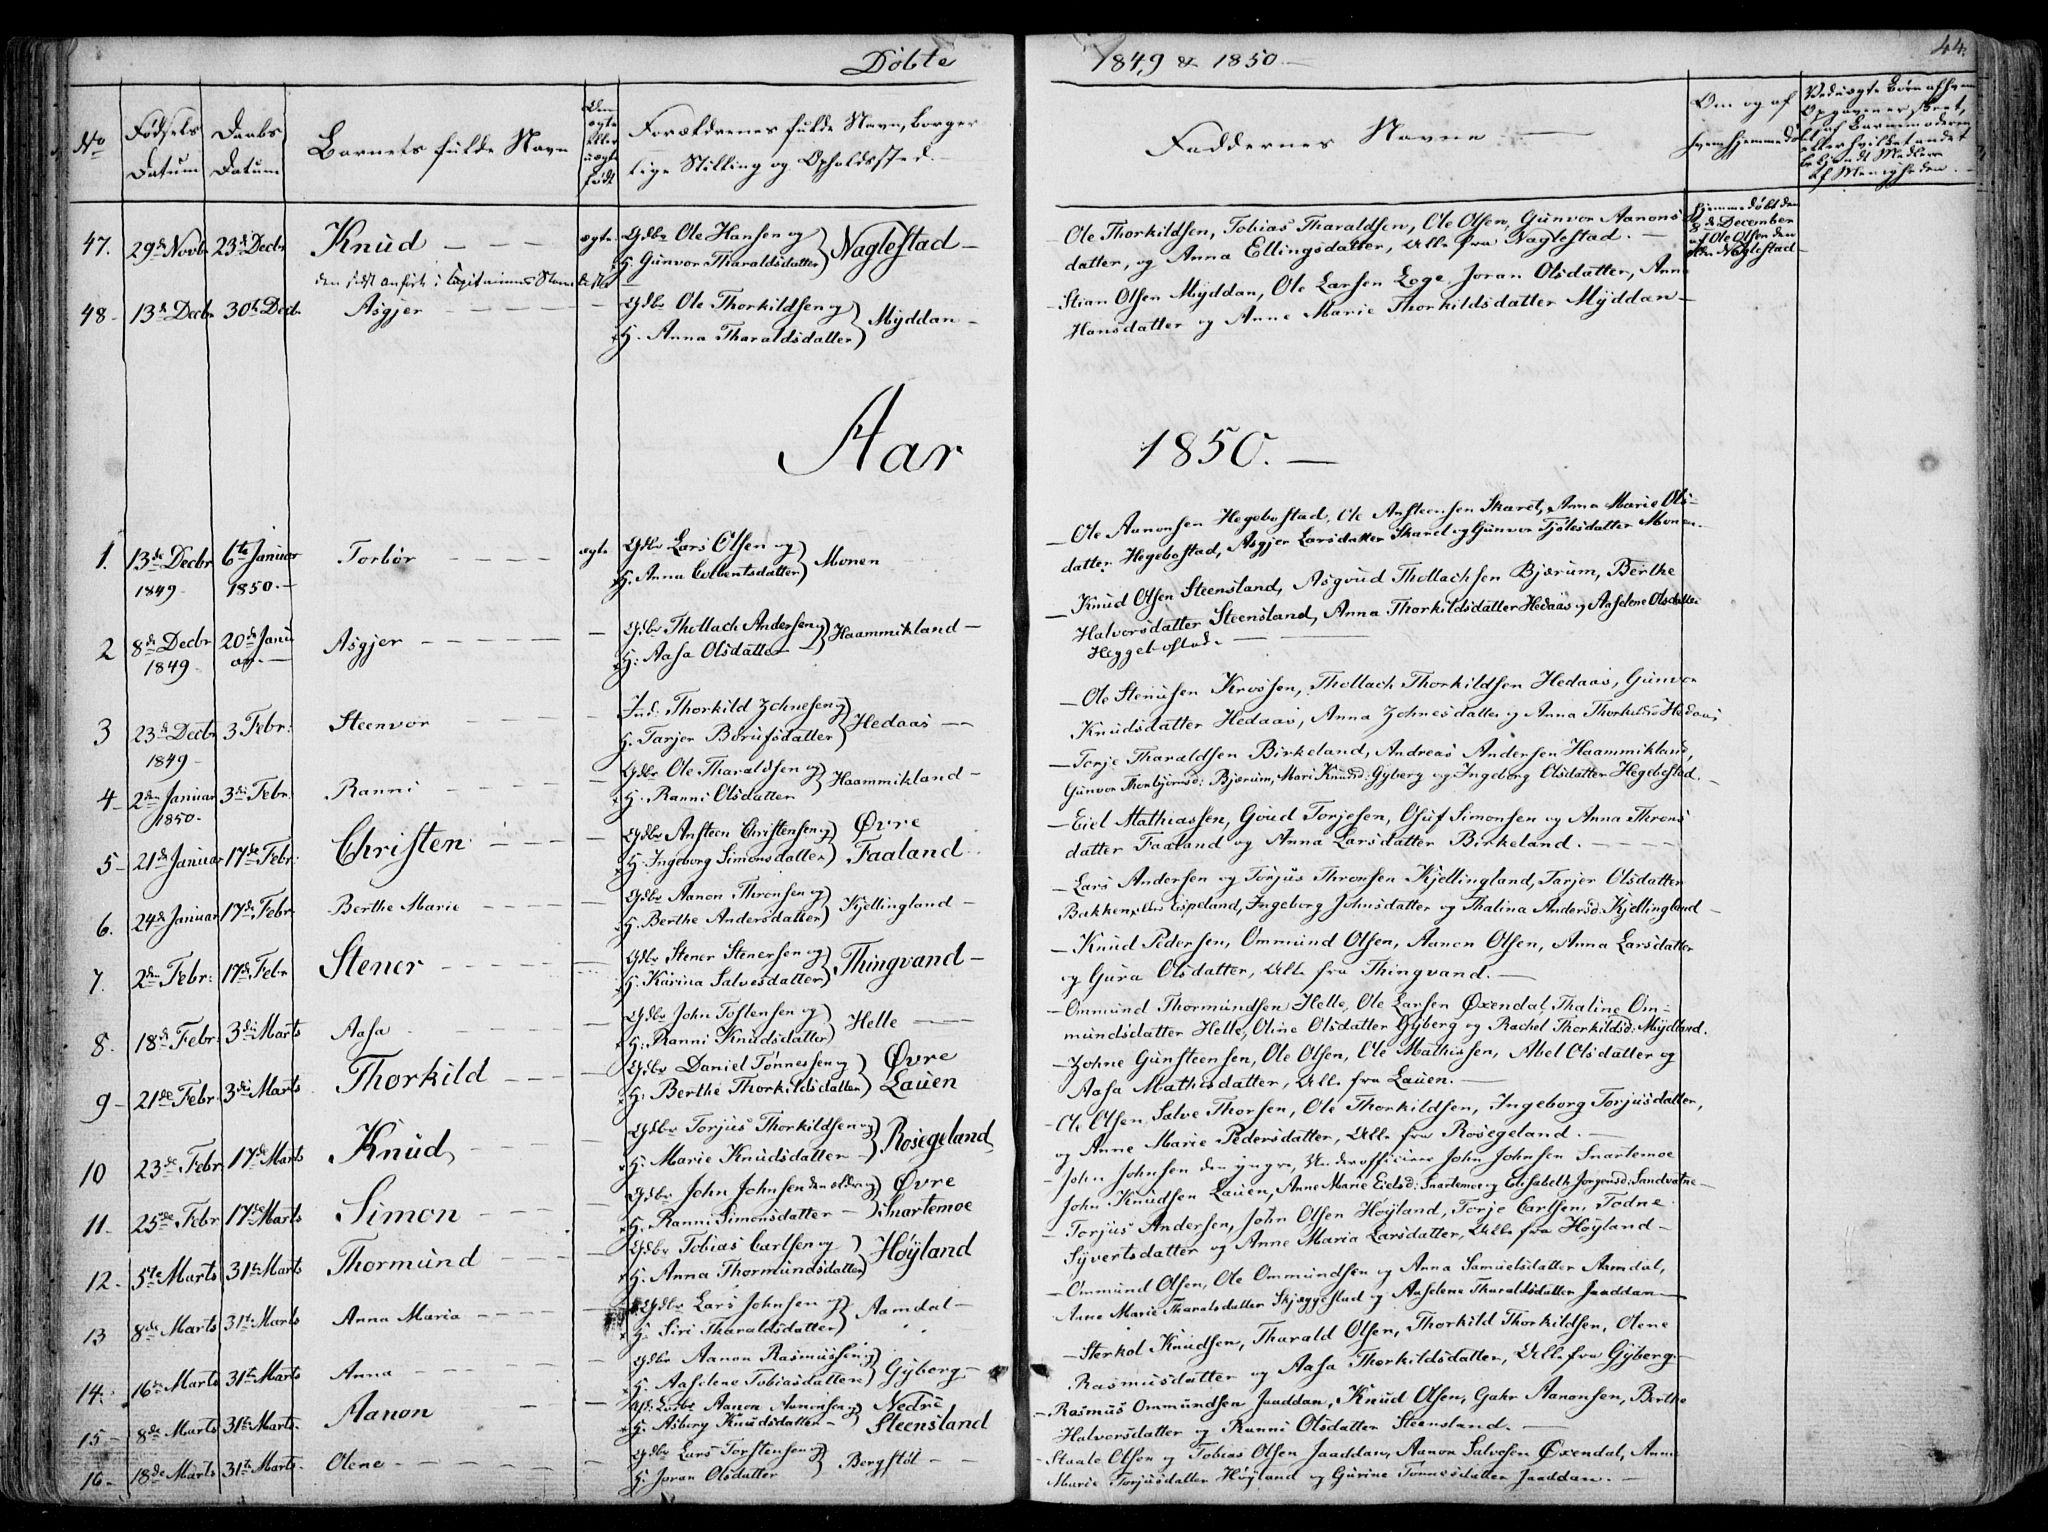 Døbte
1849 & 1850 —
44.
No
Fødsels
Datum
Daabs
Datum
Barnets fulde Navn
Om
ægte
eller
uægte
født
Forældrenes fulde Navn, borger
lige Stilling og Opholdssted. —
Faddernes Navne —
Om og af
hvem hjemmedøbt
47. 29de Novbr 23de Decbr Knud — — — ægte
Gdbr Ole Hansen og
H. Gunvor Tharaldsdatter } Naglestad —
Ole Thorkildsen, Tobias Tharaldsen, Ole Olsen, Gunvor Aanons
datter, og Anna Ellingsdatter, Alle fra Naglestad. —
Hjemmedøbt den
8de December
af Ole Olsen
Naglestad
48 — 13de Decbr 30te Decbr Asgjer — — — —
Gdbr Ole Thorkildsen og
H. Anna Tharaldsdatter } Myddan —
— Stian Olsen Myddan, Ole Larsen Lege, Joran Olsdatter, Anna
Hansdatter og Anne Marie Thorkildsdatter Myddan —
Aar 1850. —
1. 13de Decbr 6te Januar Torbør — — — — ægte
1849 1850. —
Gdbr Lars Olsen og
H. Anna Eilertsdatter } Monen
— Ole Aanonsen Hegebostad, Ole Ansteensen Skaret, Anna Marie Ols-
datter Hegebostad, Asgjer Larsdatter Skaret og Gunvor Tjølesdatter Monen.
2 8de Decbr 20de Janu Asgjer — — — — —
1849 ar. —
Gdbr Thollach Andersen og
H: Aasa Olsdatter — } Haammikland —
— Knud Olsen Steensland, Asgoud Thollachsen Bjærum, Berthe
Halvorsdatter Steensland, Anna Thorkildsdatter Hedaas og Aaselene Olsdatter
Heggebostad. —
3 23de Decbr 3 Febr: Steenvor — — — —
1849 —
Ind. Thorkild Zohnesen og
H. Tarjer Borufsdatter } Hedaas —
— Ole Stenersen Krossen, Thollach Thorkildsen Hedaas, Gunvor
Knudsdatter Hedaas, Anna Zohnesdatter og Anna Thorkildsd Hedaas
4 — 2den Januar 3die Febr: Ranni — — — —
1850.
Gdbr Ole Tharaldsen og
H. Ranni Olsdatter } Haammikland —
— Torje Tharaldsen Birkeland, Andreas Andersen Haammikland,
Gunvor Thorbjørnsd: Bjærum, Mari Knudsd: Gyberg og Ingeborg Olsdatter Hegebostad. —
5 — 21de Januar 17de Febr: Christen — — —
Gdbr Ansteen Christensen og
H. Ingeborg Simonsdatter } Øvre Faaland.
— Eiel Mathiassen, Goud Torjesen, Osuf Simonsen og Anna Throns
datter Faaland og Anna Larsdatter Birkeland. — — — —
6. 24de Januar 17de Febr. Berthe Marie — — —
Gdbr Aanon Thronsen og
H. Berthe Andersdatter } Kjellingland —
— Lars Andersen og Torjus Thronsen Kjellingland, Tarjer Olsdatter
Bakken, Espeland, Ingeborg Johnsdatter og Thalina Andersd: Kjellingland —
7. 2den Febr: 17de Febr Stener — — — —
Gdbr Stener Stenersen og
H. Karina Salvesdatter } Thingvand —
— Knud Pedersen, Ommund Olsen, Aanon Olsen, Anna Larsdatter
og Gura Olsdatter, Alle fra Thingvand. —
8. 18de Febr: 3die Marts Aasa — — — —
Gdbr John Toftensen og
H: Ranni Knudsdatter } Helle —
— Ommund Thormundsen Helle, Ole Larsen Øxendal, Thaline Om-
mundsdatter Helle, Oline Olsdatter Gyberg og Rachel Thorkildsd: Mydland.
9 — 21de Febr. 3die Marts Thorkild — — —
Gdbr Daniel Tønnessen og
H: Berthe Thorkildsdatter } Øvre Lauen
— Zohne Gunsteensen, Ole Olsen, Ole Mathissen, Abel Olsdatter og
Aasa Mathisdatter, Alle fra Lauen. —
10 23de Febr 17de Marts Knud — — —
Gdbr Torjus Thorkildsen og
H. Marie Knudsdatter — } Rosegeland
— Ole Olsen, Salve Thorsen, Ole Thorkildsen, Ingeborg Torjusdatter,
og Anne Marie Pedersdatter, Alle fra Rosegeland. —
11. 25de Febr 17de Marts Simon — — —
Gdbr John Johnsen den eldre og
H. Ranni Simonsdatter — } Øvre Snartemoe
— John Johnsen den yngre, Underofficiere John Johnsen Snartemoe
John Knudsen Lauen, Anne Marie Eielsd: Snartemoe og Elisabeth Jørgensd: Sandvatne —
12. 5te Marts 31te Marts Thormund — — —
Gdbr Tobias Carlsen og
H. Anna Thormundsdatter } Høyland
— Torjus Andersen, John Olsen Høyland, Torje Carlsen, Todne
Syvertsdatter og Anne Maria Larsdatter, Alle fra Høyland —
13 8de Marts 31te Marts Anna Maria — — —
Gdbr Lars Johnsen og
H. Siri Tharaldsdatter } Aamdal —
— Ommund Olsen, Ole Ommundsen og Anna Samuelsdatter Aamdal,
Anne Marie Tharalsdatter Skjeggestad og Aaselene Tharaldsdatter Jaaddan —
14. 16de Marts 31te Marts Anna — — — —
Gdbr Aanon Rasmussen og
H. Aaselene Tobiasdatter } Gyberg —
— Sterkol Knudsen, Tharald Olsen, Thorkild Thorkildsen, Olene
Rasmusdatter og Aasa Thorkildsdatter, Alle fra Gyberg —
15 — 8de Marts 31te Marts. Aanon — —
Aanon Aanonsen og
H. Asborg Knudsdatter — } Nedre Steensland
— Rasmus Ommundsen Jaaddan, Knud Olsen, Gahr Aanonsen, Berthe
Halvorsdatter og Ranni Olsdatter Steensland. —
16 — 18de Marts 31te Marts. Olene — — — —
Gdbr Lars Torstensen og
H. Joran Olsdatter } Bergstøl — —
— Staale Olsen og Tobias Olsen Jaaddan, Aanon Salvesen Øxendal, Anne
Marie Torjusdatter Høyland og Gurine Tønnesdatter Jaaddan. —